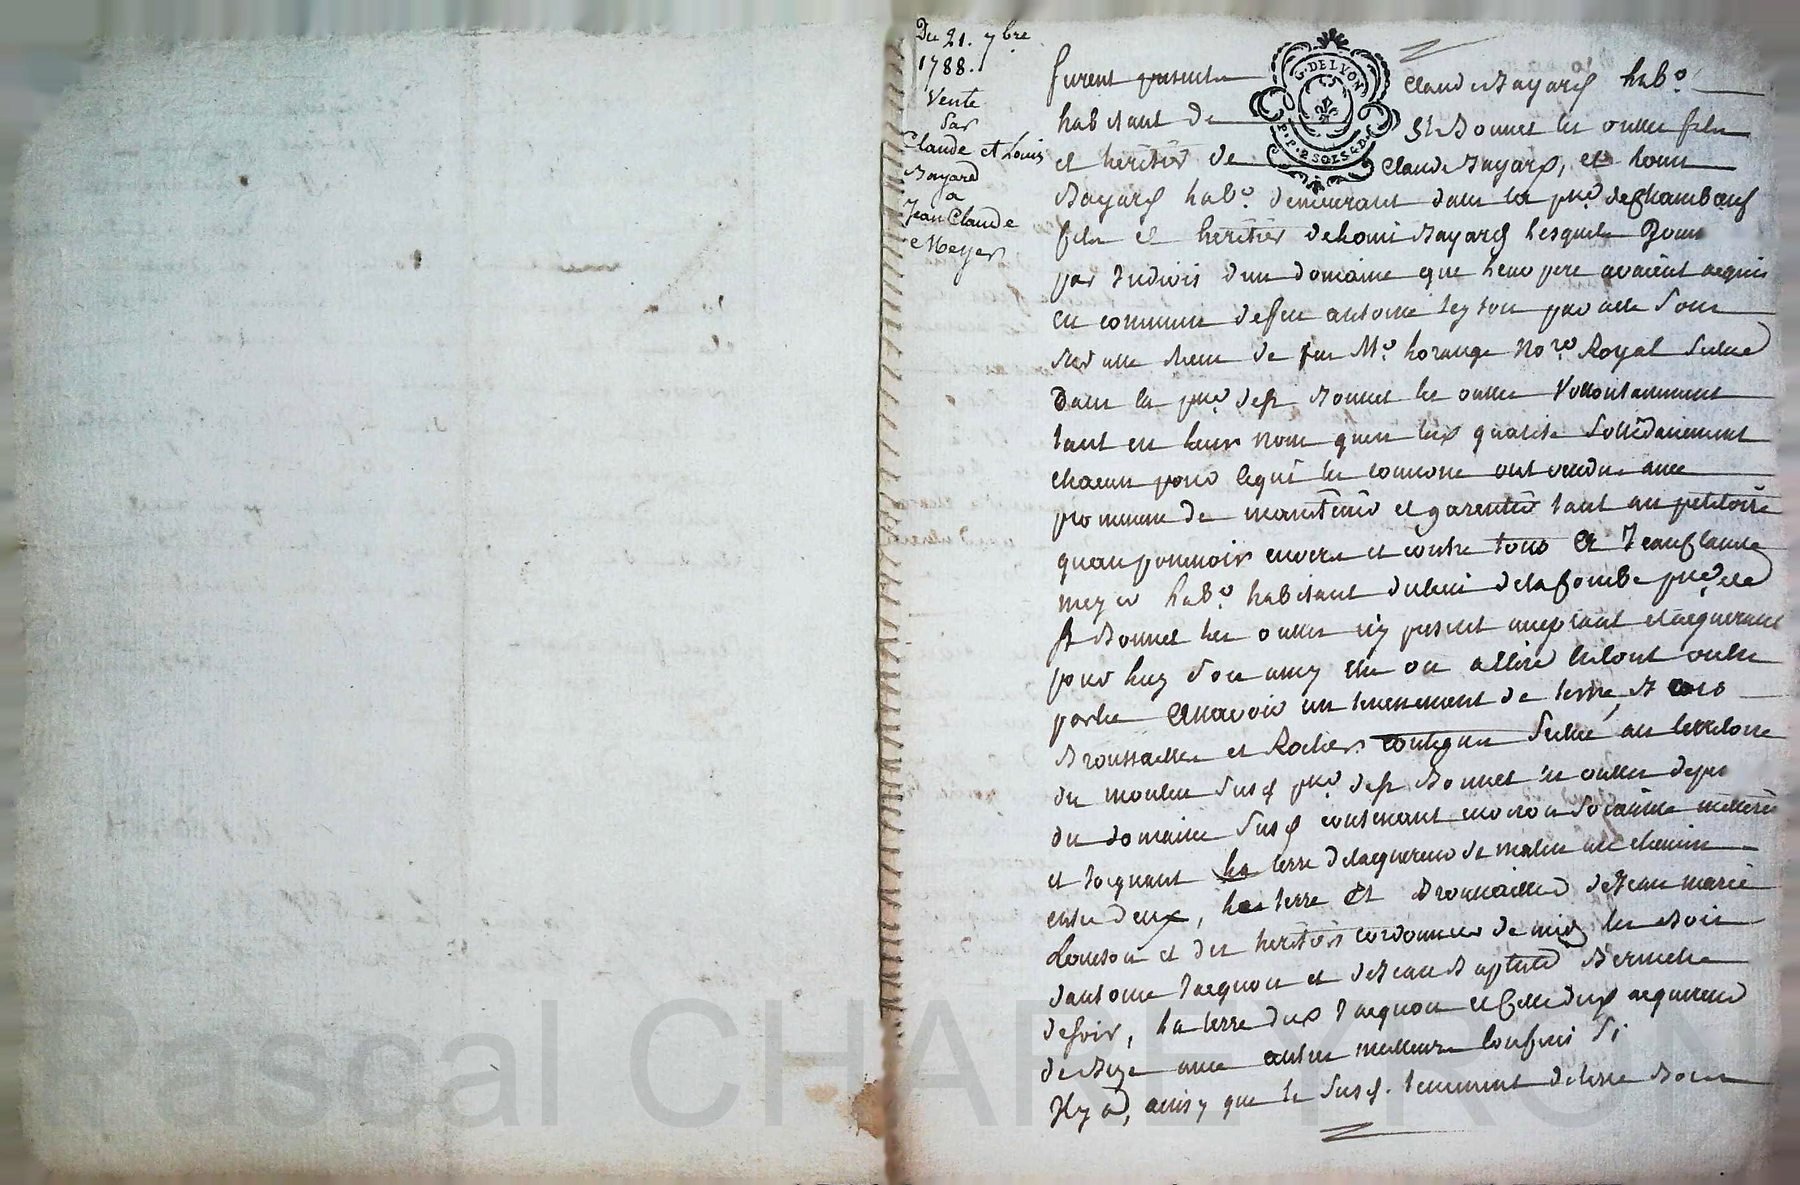 Du 21. 7bre
1788.
Vente
par
Claude et Louis
Bayard
a
Jean Claude
Meyer
G. DE LYON
P. P. 2 SOLS 4 D.
furent presents Claude Bayard labr
habitant de St Bonnet les oulles fils
et heritier de Claude Bayard, et Louis
Bayard labr demeurant dans la psse de Chambœuf
fils et heritier de Louis Bayard lesquels
par Indivis dun domaine que leur pere avaient acquis
en commun de feu antoine par acte sous
de feu Me Lorange Nore Royal situé
Dans la psse de St Bonnet les oulles Vollontairement
tant en leurs noms quen dte qualité sollidairement
chacun pour ce qui les concerne ont vendu avec
promesse de maintenir et garentir tant au petitoire
quau poumoir envers et contre tous a Jean Claude
meyer labr habitant du lieu de la Combe psse de
St Bonnet les oulles icy present acceptant et acquerant
pour luy son amy elu ou a elire
partie assavoir un tenement de terre, Bois
Broussailles et Rochers contigus situé au territoire
du moulin susd psse de St Bonnet les oulles dept
du domaine susd contenant environ soixante metterées
et joignant la terre de lacquereur de matin un chemin
entre deux, la terre et Broussailles de Jean marie
et des heritiers cordonnier de midy les Bois
dantoine Jacquon et de Jean Baptiste
de soir, la terre dud Jacquon et celle dud acquereur
de Bize avec autres meilleurs confins si
Il y a, ainsy que le susd. tenement de terre Bois
Pascal CHAREYRON